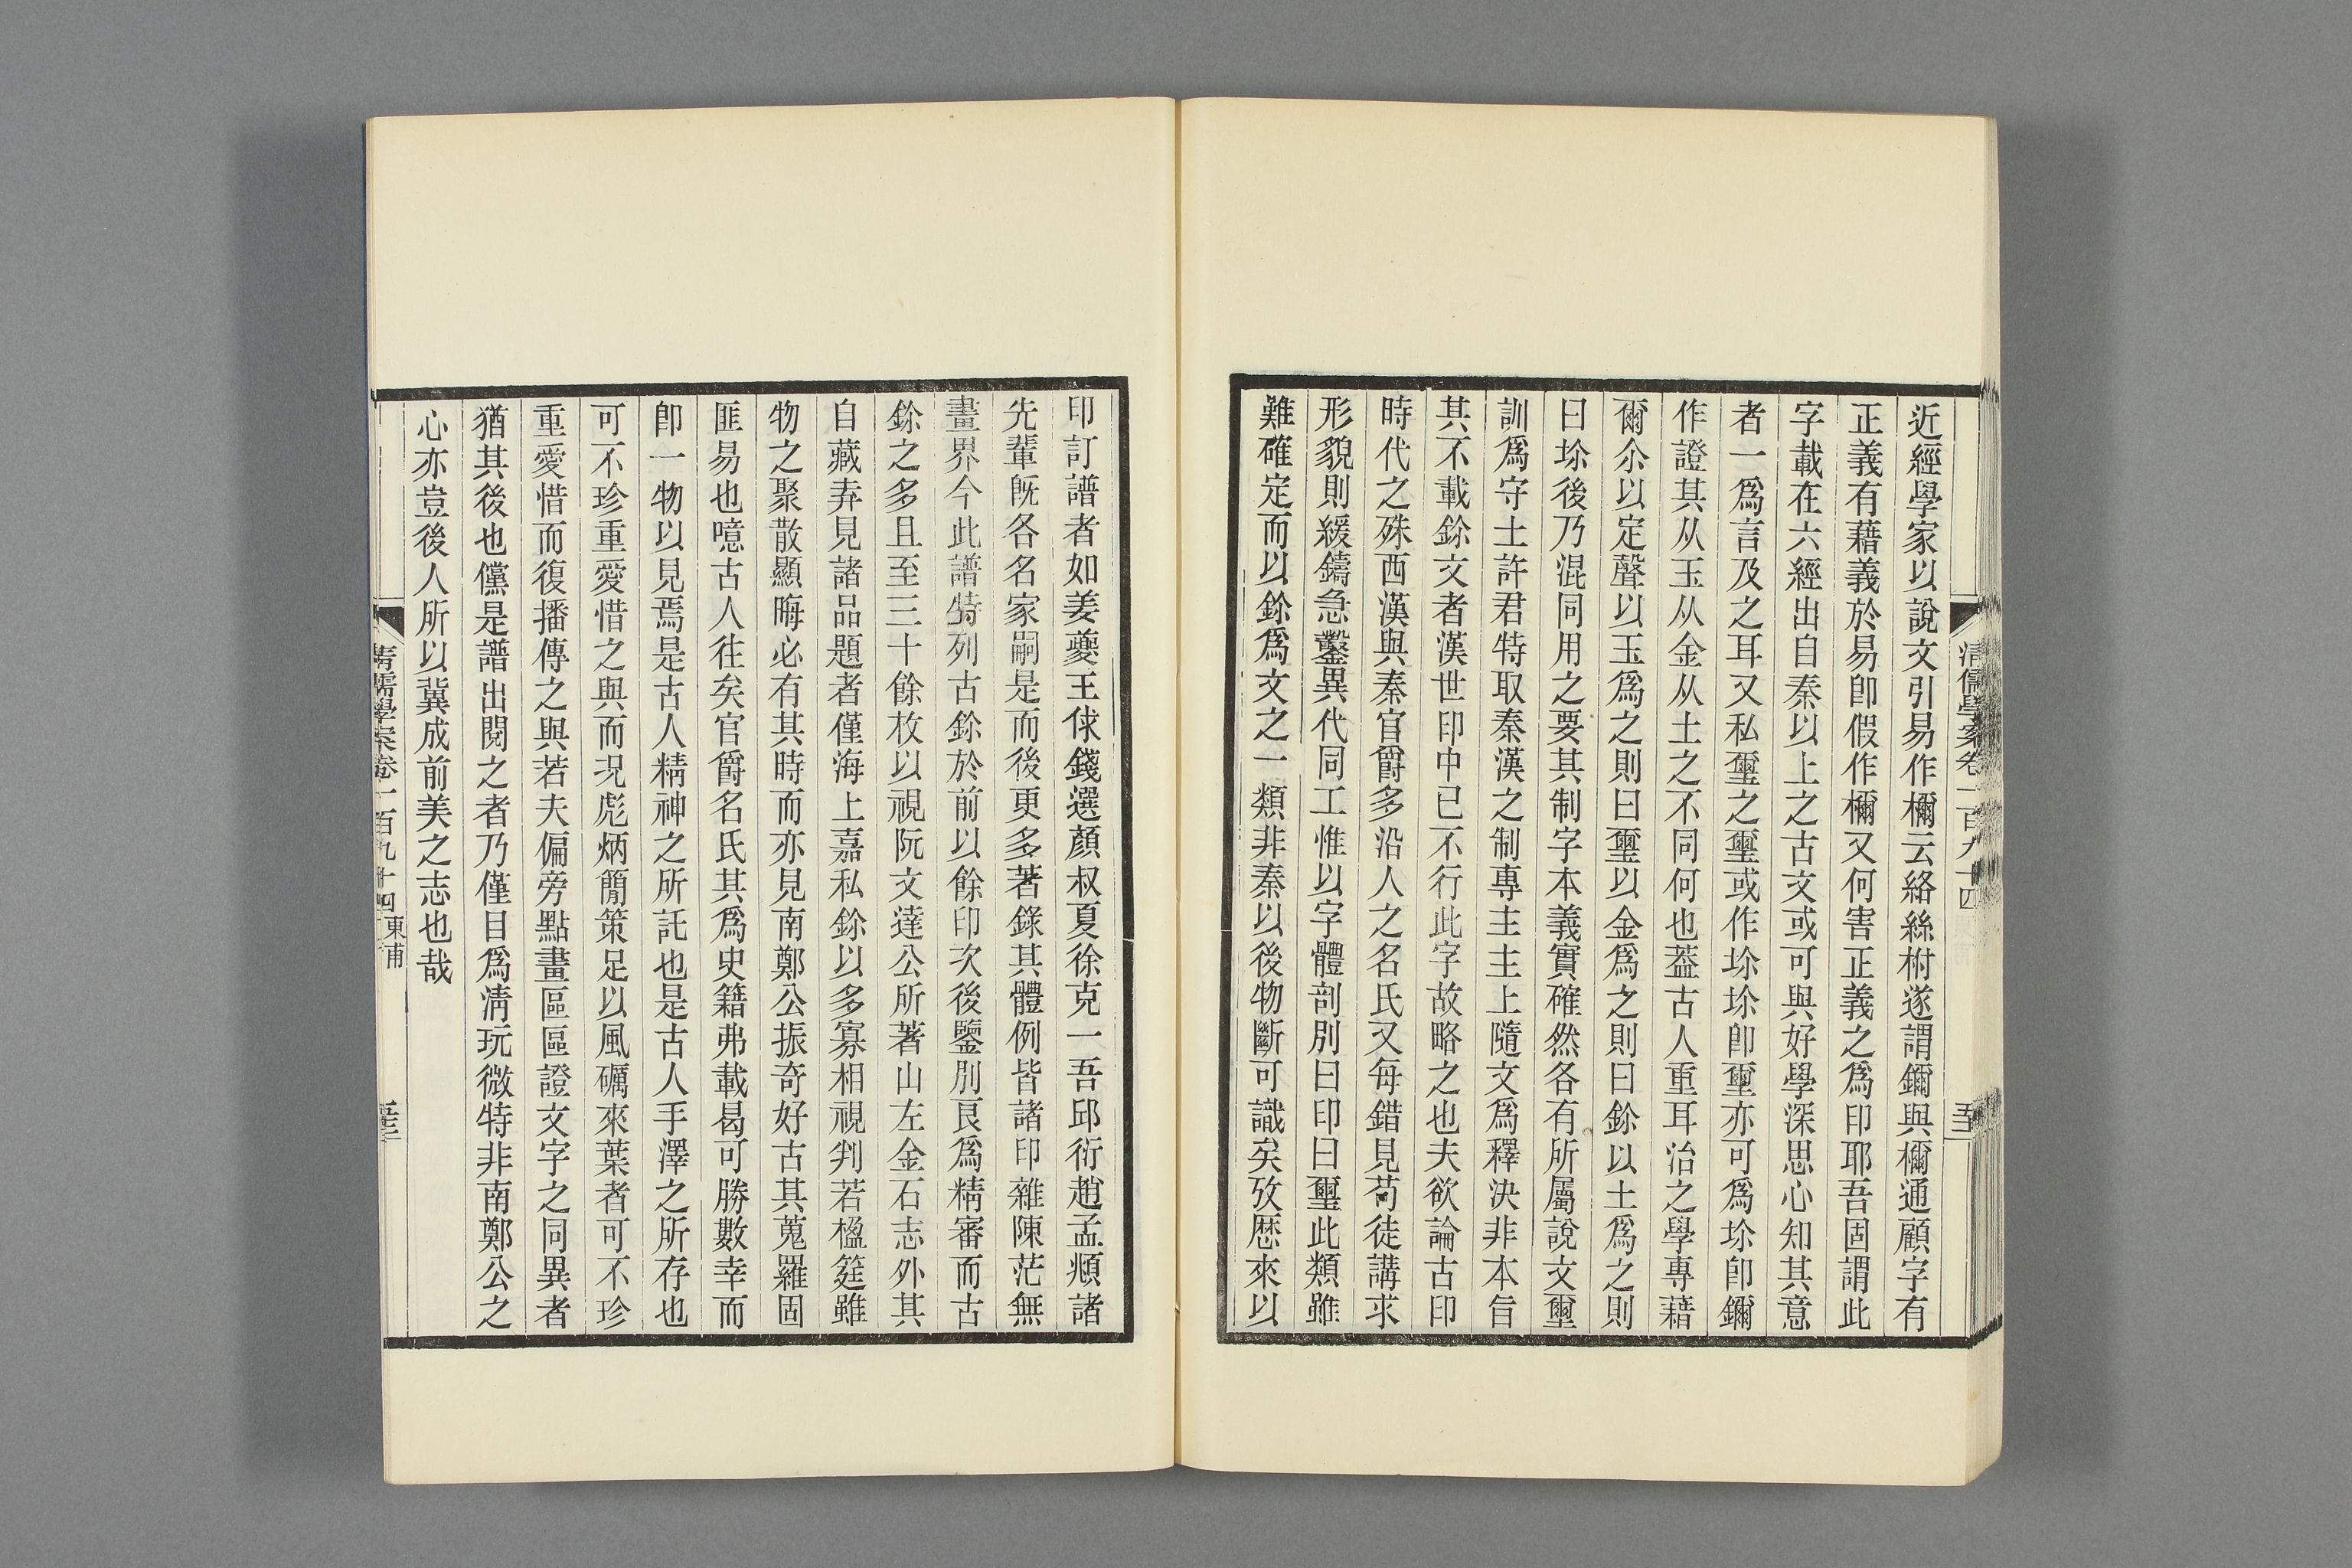 清儒學案卷一百九十四
近經學家以說文引易作檷云絡絲柎遂謂鑈與檷通顧字有
正義有藉義於易卽假作檷又何害正義之爲印耶吾固謂此
字載在六經出自秦以上之古文或可與好學深思心知其意
者一爲言及之耳又私璽之璽或作坌坌卽壐亦可爲坌卽鑈
作證其从玉从金从土之不同何也蓋古人重耳治之學專藉
爾尒以定聲以玉爲之則曰璽以金爲之則曰鉨以土爲之則
曰坌後乃混同用之要其制字本義實確然各有所屬說文壐
訓爲守土許君特取秦漢之制專主主上隨文爲釋決非本旨
其不載鉨文者漢世印中已不行此字故略之也夫欲論古印
時代之殊西漢與秦官爵多沿人之名氏又每錯見苟徒講求
形貌則緩鑄急鑿異代同工惟以字體剖別曰印曰璽此類雖
難確定而以鉨爲文之一類非秦以後物斷可識矣攷歷來以
印訂譜者如姜夔王俅錢選顏叔夏徐克一吾邱衍趙孟頫諸
先輩旣各名家嗣是而後更多著錄其體例皆諸印雜陳茫無
畫界今此譜特列古鉨於前以餘印次後鑒別良爲精審而古
鉨之多且至三十餘枚以視阮文達公所著山左金石志外其
自藏弆見諸品題者僅海上嘉私鉨以多寡相視判若楹筳雖
物之聚散顯晦必有其時而亦見南鄭公振奇好古其蒐羅固
匪易也噫古人往矣官爵名氏其爲史籍弗載曷可勝數幸而
卽一物以見焉是古人精神之所託也是古人手澤之所存也
可不珍重愛惜之與而況彪炳簡策足以風礪來葉者可不珍
重愛惜而復播傳之與若夫偏旁點畫區區證文字之同異者
猶其後也儻是譜出閱之者乃僅目爲淸玩微特非南鄭公之
心亦豈後人所以冀成前美之志也哉
清儒學案卷一百九十四 東甫